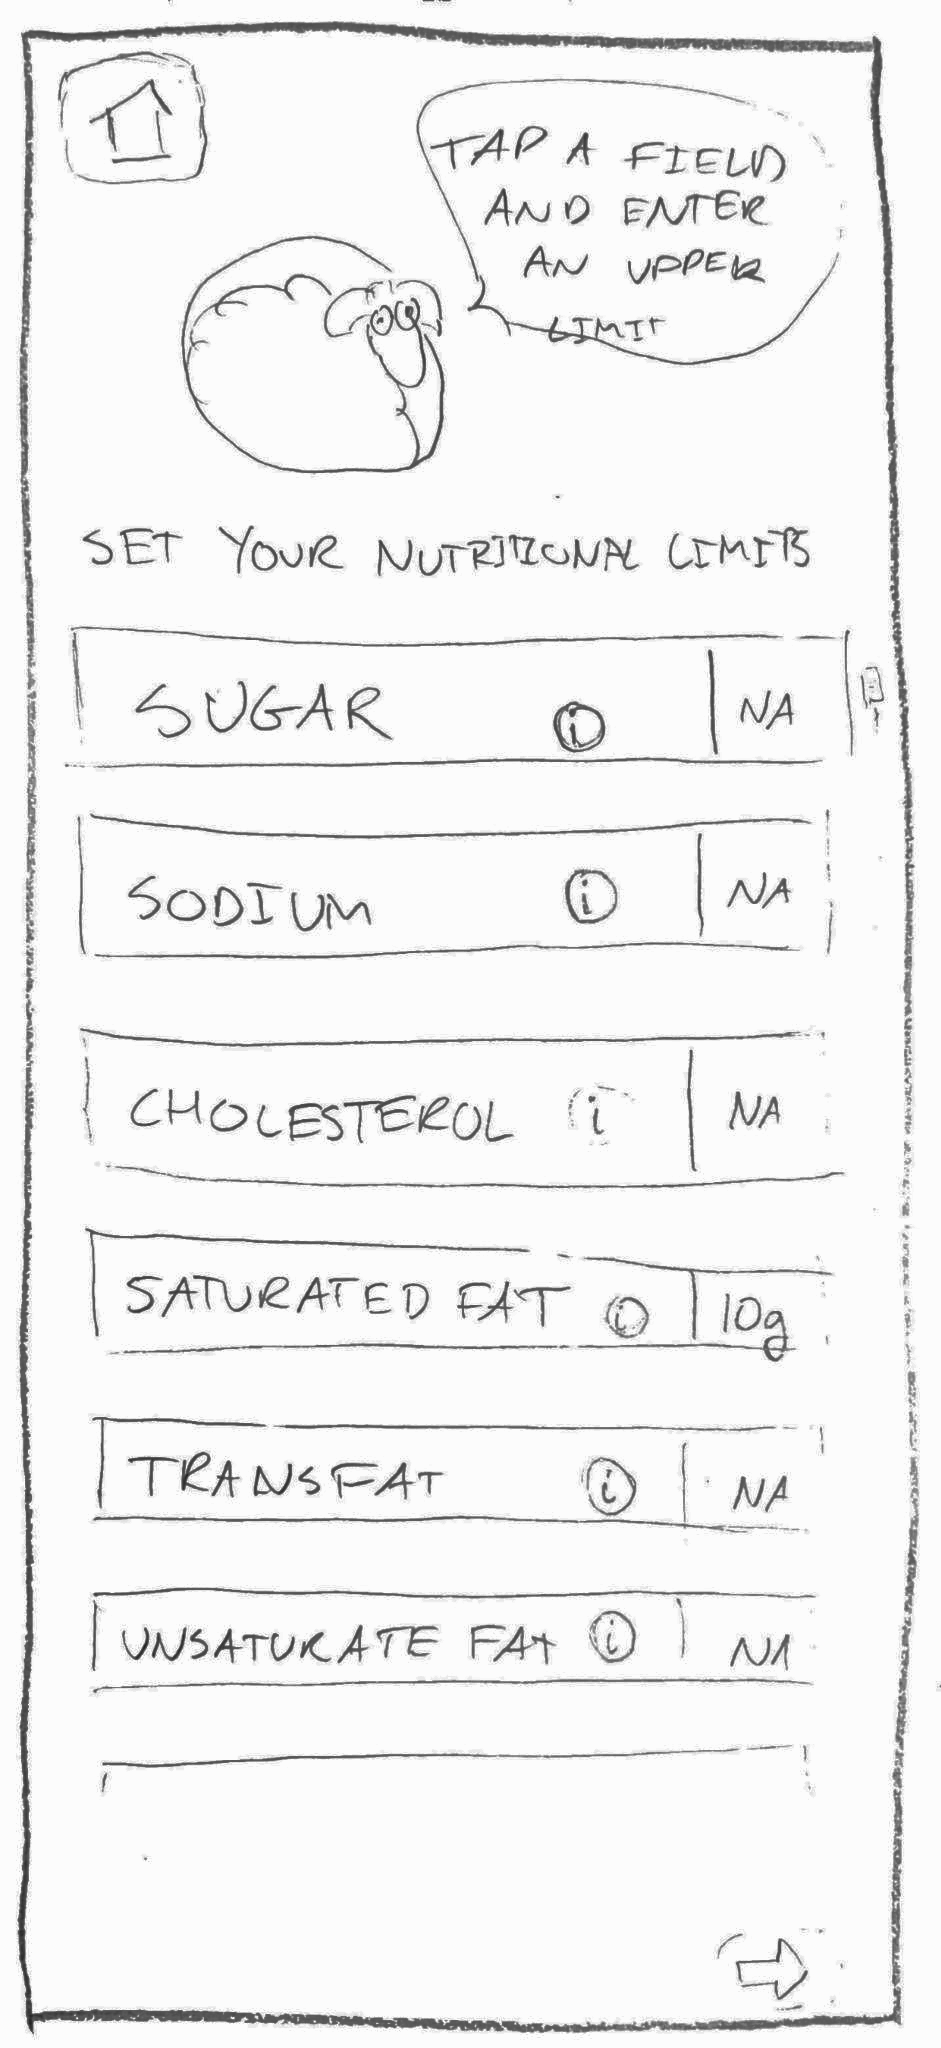 TAP A FIELD
AND ENTER
AN UPPER
LIMIT
SET YOUR NUTRITIONAL LIMITS
SUGAR i NA
SODIUM i NA
CHOLESTEROL i NA
SATURATED FAT i 10g
TRANSFAT i NA
UNSATURATE FAT i NA